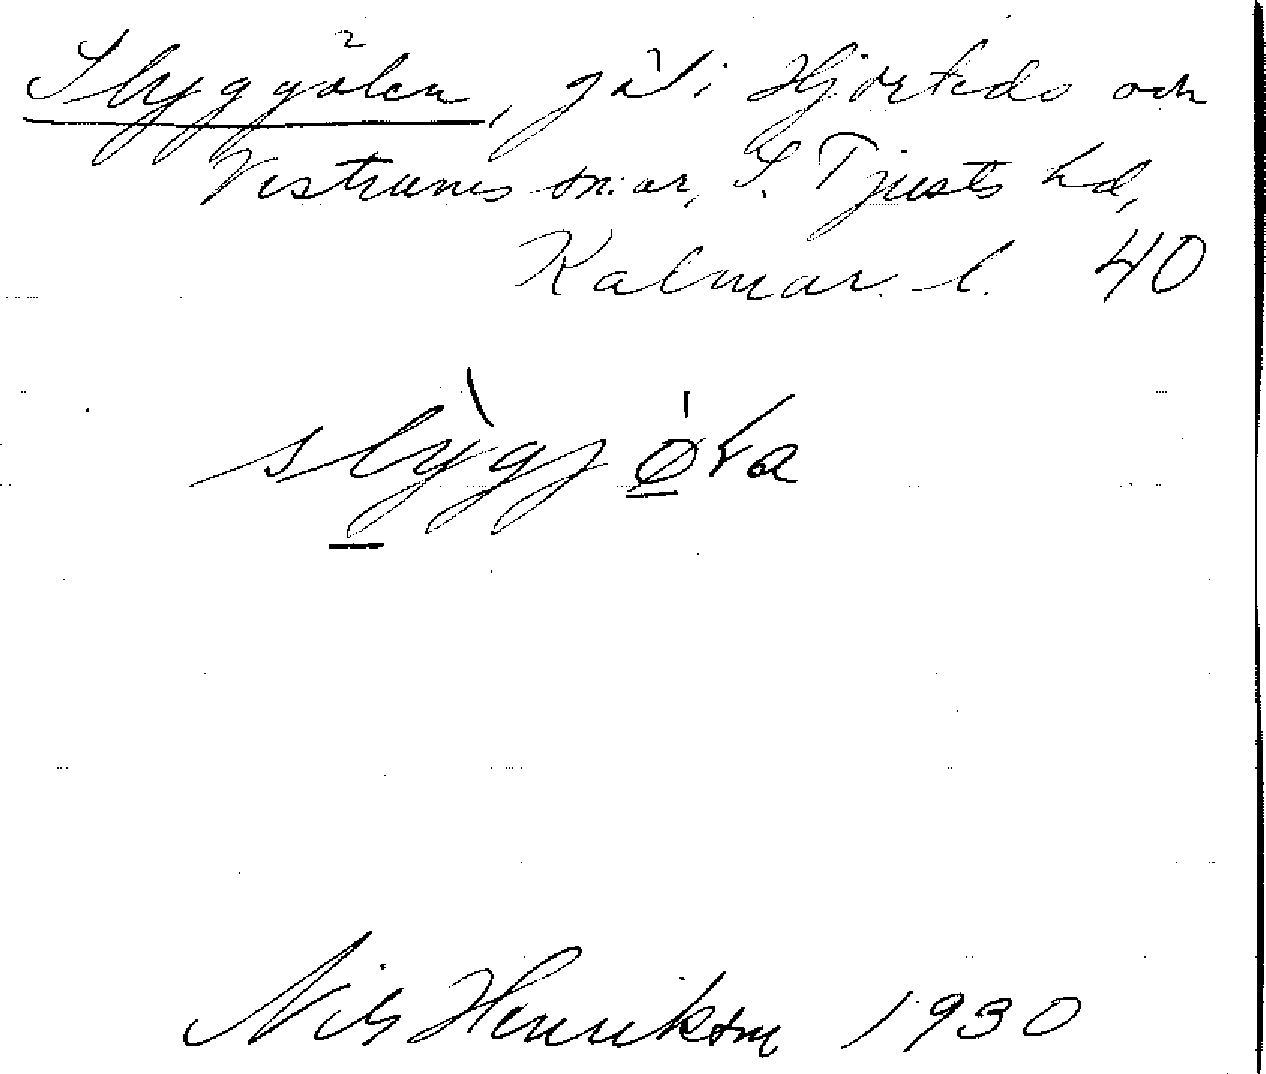 Slyggölen, göl i Hjorteds och
Vestrums sn:ar, S. Tjusts hd,
Kalmar l. 40
Nils Henrikson 1930